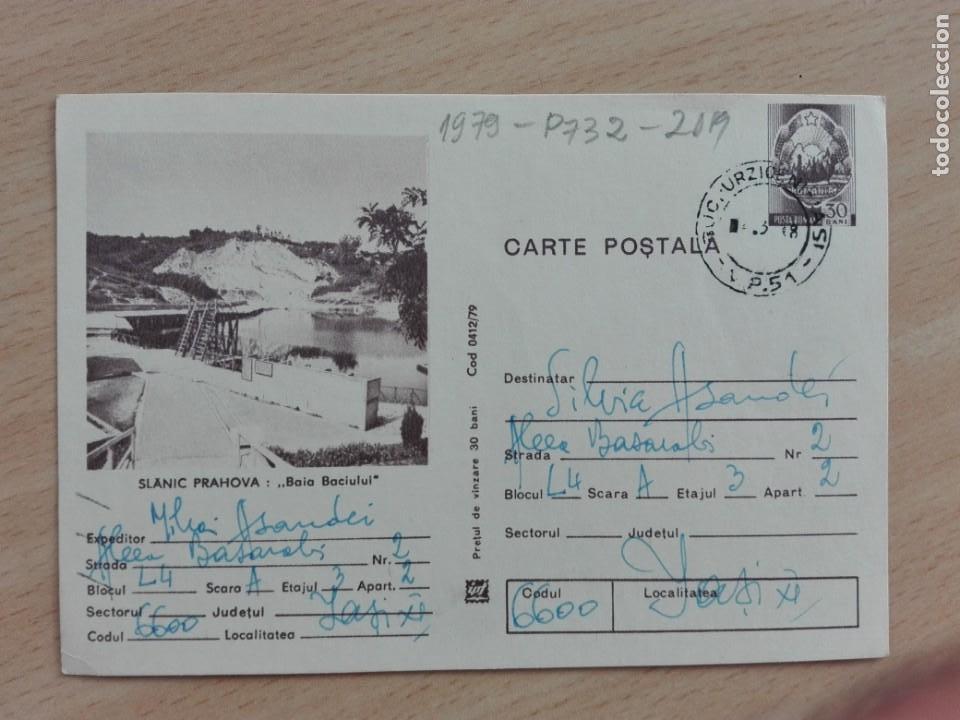 1979 - P732 - 219
POSTA ROMANA
30
BANI
CARTE POȘTALĂ
SLĂNIC PRAHOVA : ,,Baia Baciului"
Expeditor Mihai Asandei
Strada Aleea Basarabi Nr. 2
Blocul L4 Scara A Etajul 3 Apart. 2
Sectorul Județul Iași XI
Codul 6600 Localitatea
Prețul de vînzare 30 bani Cod 0412/79
Destinatar Silvia Asandei
Strada Aleea Basarabi Nr 2
Blocul L4 Scara A Etajul 3 Apart. 2
Sectorul Județul
Codul 6600 Localitatea Iași XI
todocoleccion